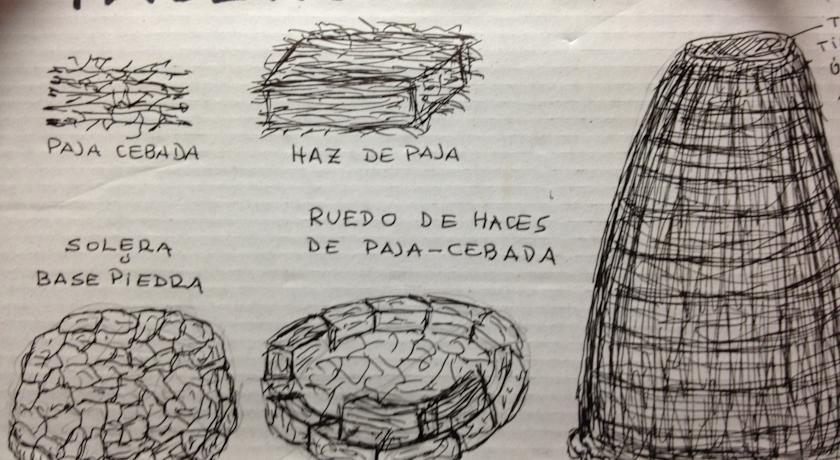 PAJA CEBADA
HAZ DE PAJA
RUEDO DE HACES
DE PAJA-CEBADA
SOLERA
y
BASE PIEDRA